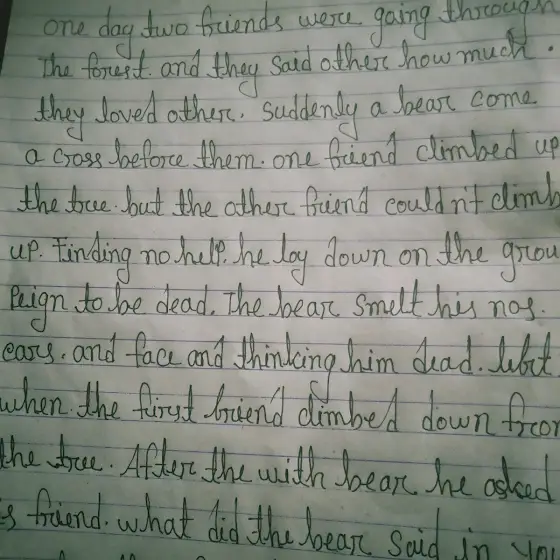 one day two friends were going through
The forest. and they said other how much.
they loved other. suddenly a bear come
a cross before them. one friend climbed up
the tree. but the other friend couldn't climb
up. Finding no help. he lay down on the grou
Peign to be dead. The bear smelt his nos.
ears. and face and thinking him dead. lebt.
when the first friend climbed down from
the tree. After the with bear he asked
is friend. what did the bear said in you